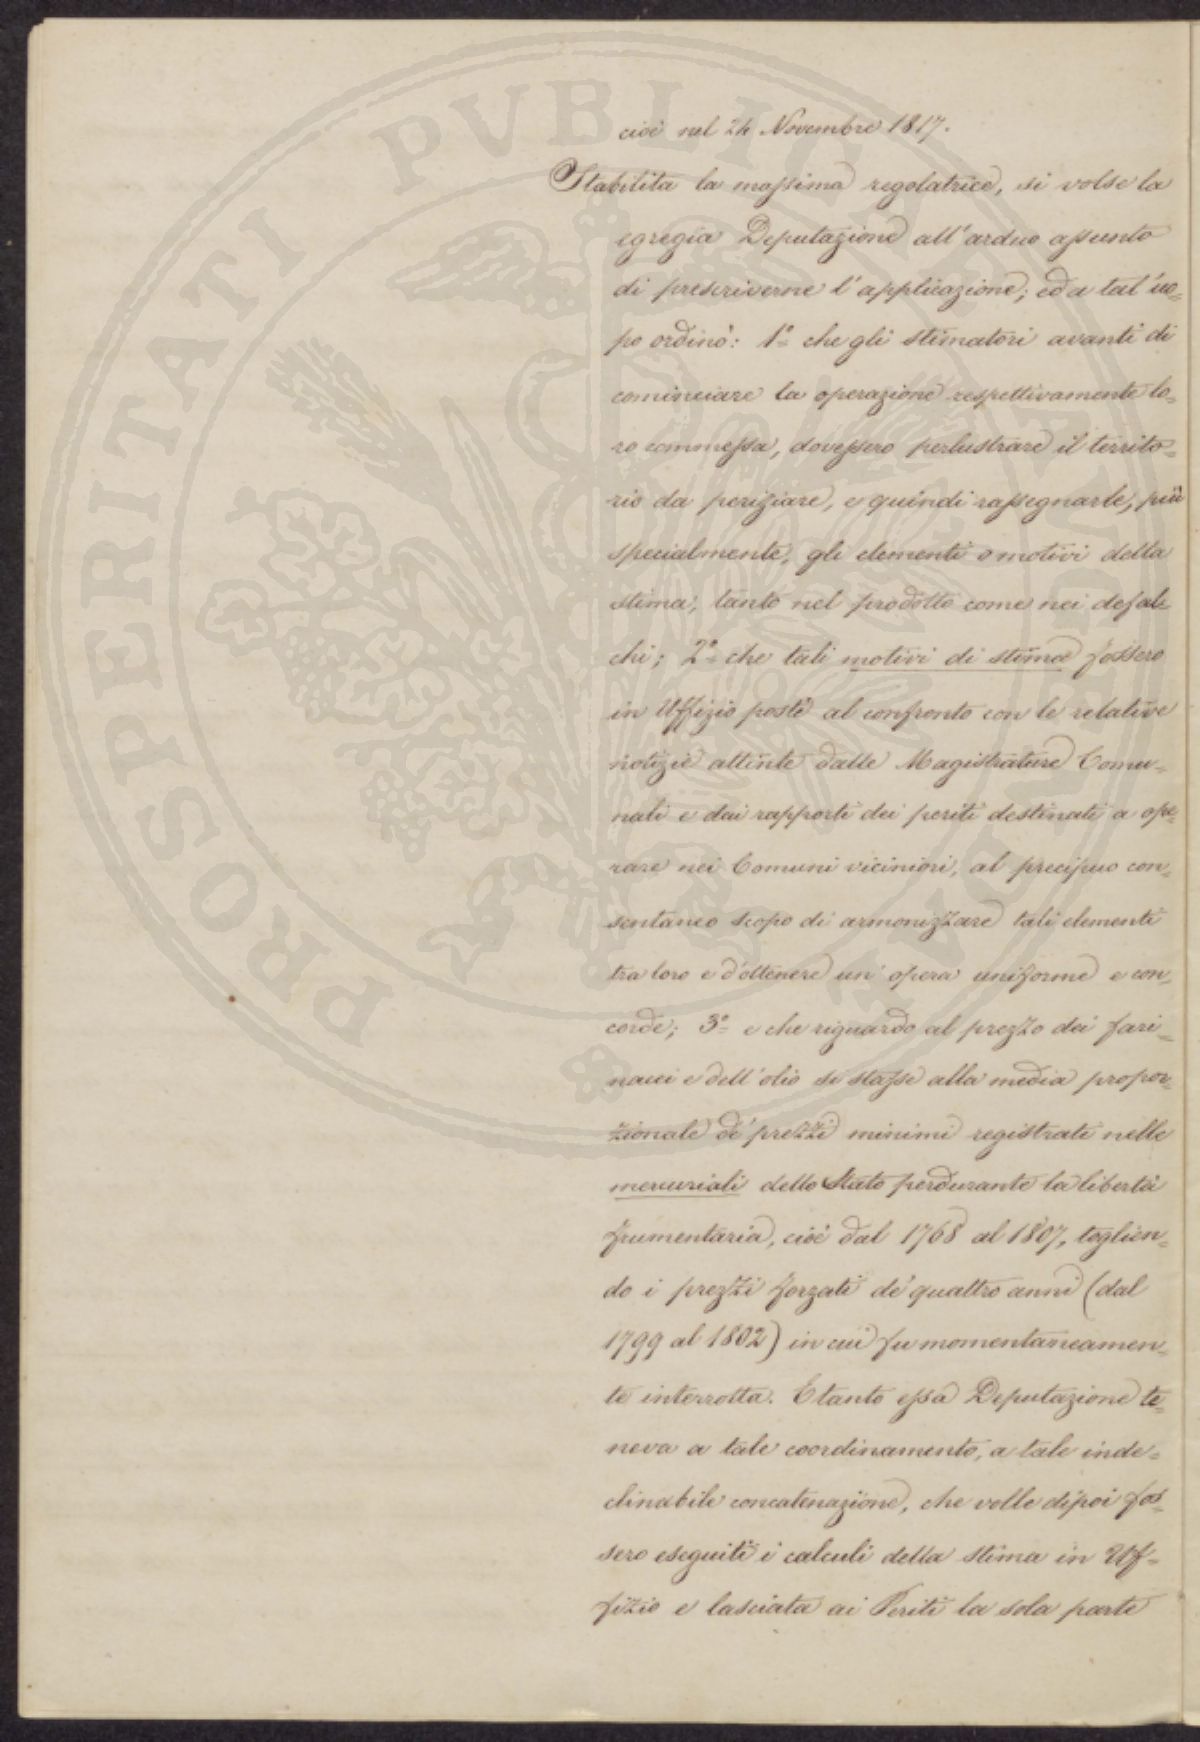 cioè nel 24 Novembre 1817.
Stabilita la massima regolatrice, si volse la
egregia Deputazione all'arduo assunto
di prescriverne l'applicazione; ed a tal uo=
po ordinò: 1.° che gli stimatori avanti di
cominciare la operazione respettivamente lo=
ro commessa, dovessero perlustrare il territo=
rio da periziare, e quindi rassegnarle, più
specialmente, gli elementi o motivi della
stima; tanto nel prodotto come nei defal=
chi; 2.° che tali motivi di stima fossero
in Uffizio posti al confronto con le relative
notizie attinte dalle Magistrature Comu=
nali e dai rapporti dei periti destinati a ope=
rare nei Comuni viciniori, al precipuo con=
sentaneo scopo di armonizzare tali elementi
tra loro e d'ottenere un' opera uniforme e con=
corde; 3.° e che riguardo al prezzo dei fari=
nacei e dell'olio si stasse alla media propor=
zionale de' prezzi minimi registrati nelle
mercuriali dello Stato perdurante la libertà
frumentaria, cioè dal 1768 al 1807, toglien=
do i prezzi forzati de' quattro anni (dal
1799 al 1802) in cui fu momentaneamen=
te interrotta. E tanto essa Deputazione te=
neva a tale coordinamento, a tale inde=
clinabile concatenazione, che volle dipoi fos=
sero eseguiti i calculi della stima in Uf=
fizio e lasciata ai Periti la sola parte
PROSPERITATI PVBLICAE